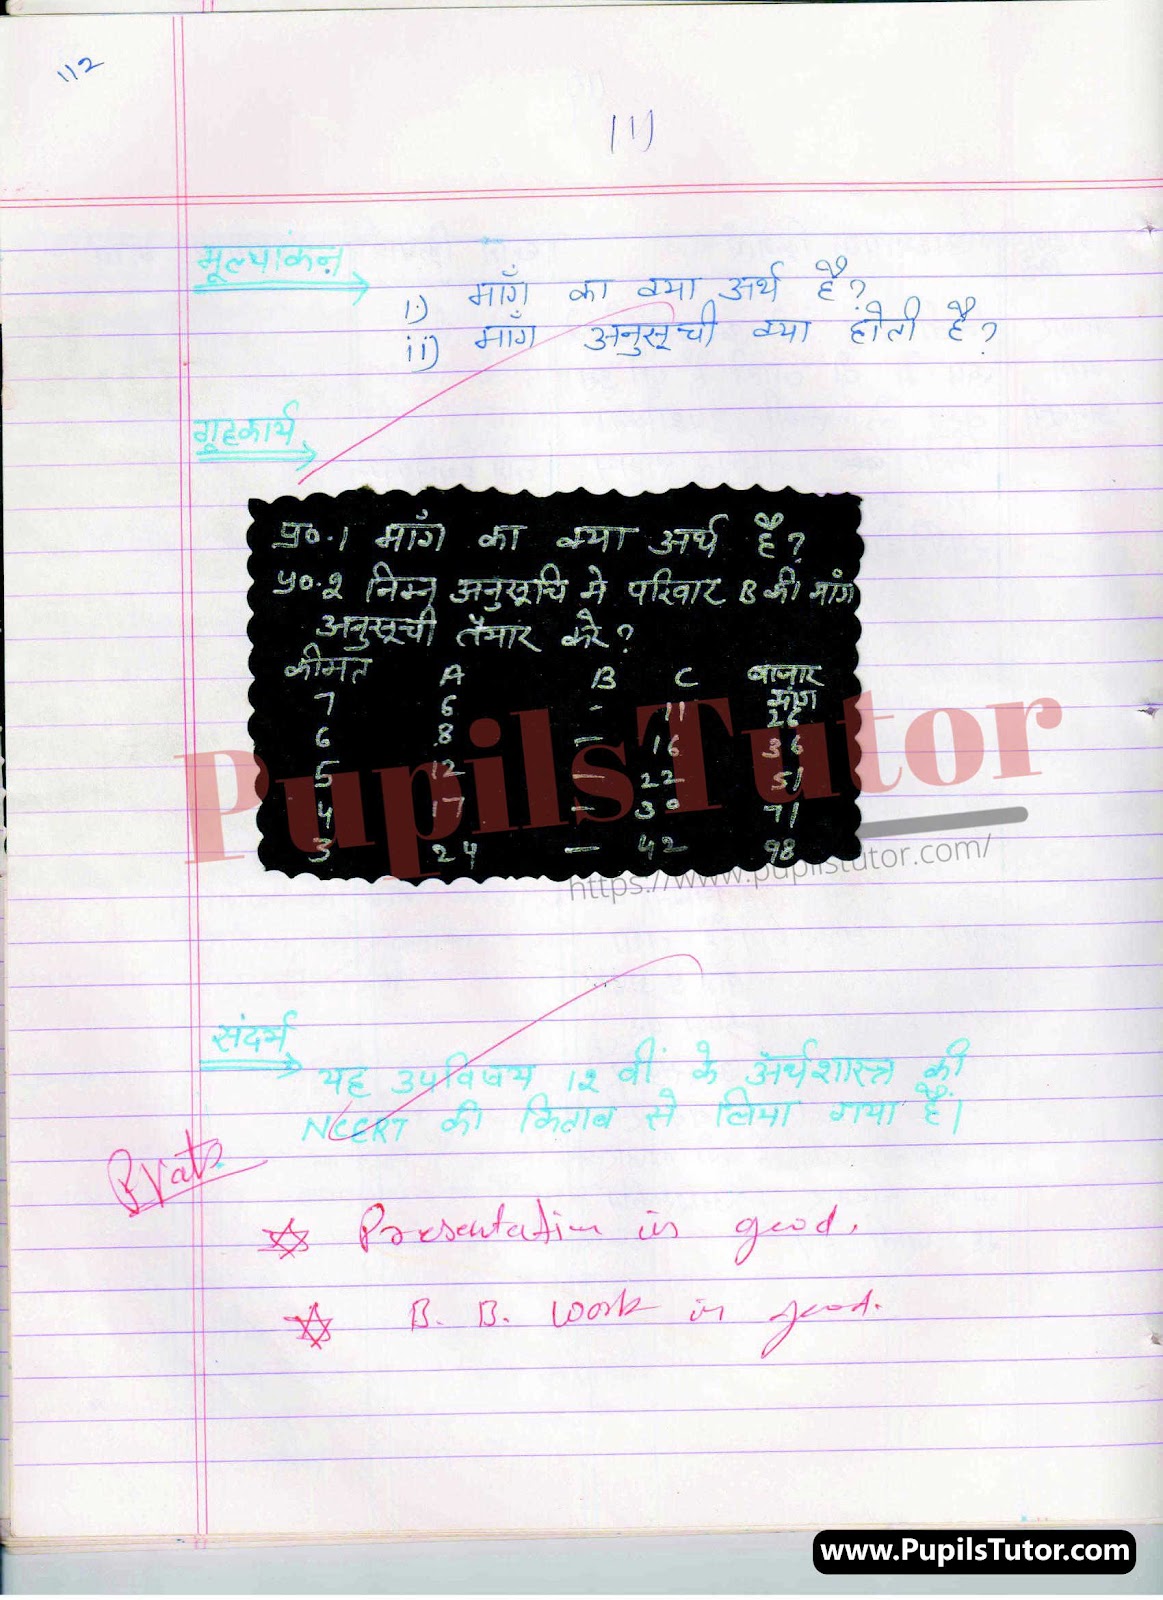 112
111
मूल्यांकन
i) माँग का क्या अर्थ है?
ii) माँग अनुसूची क्या होती है?
गृहकार्य
प्र०.1 माँग का क्या अर्थ है?
प्र०.2 निम्न अनुसूचि मे परिवार B की मांग
अनुसूची तैयार करे?
कीमत A B C बाजार मांग
7 6 - 11 26
6 8 - 16 36
5 12 - 22 51
4 17 - 30 71
3 24 - 42 98
PupilsTutor
https://www.pupilstutor.com/
संदर्भ
यह उपविषय 12 वीं के अर्थशास्त्र की
NCERT की किताब से लिया गया है।
Presentation is good.
B. B. work is good.
www.PupilsTutor.com